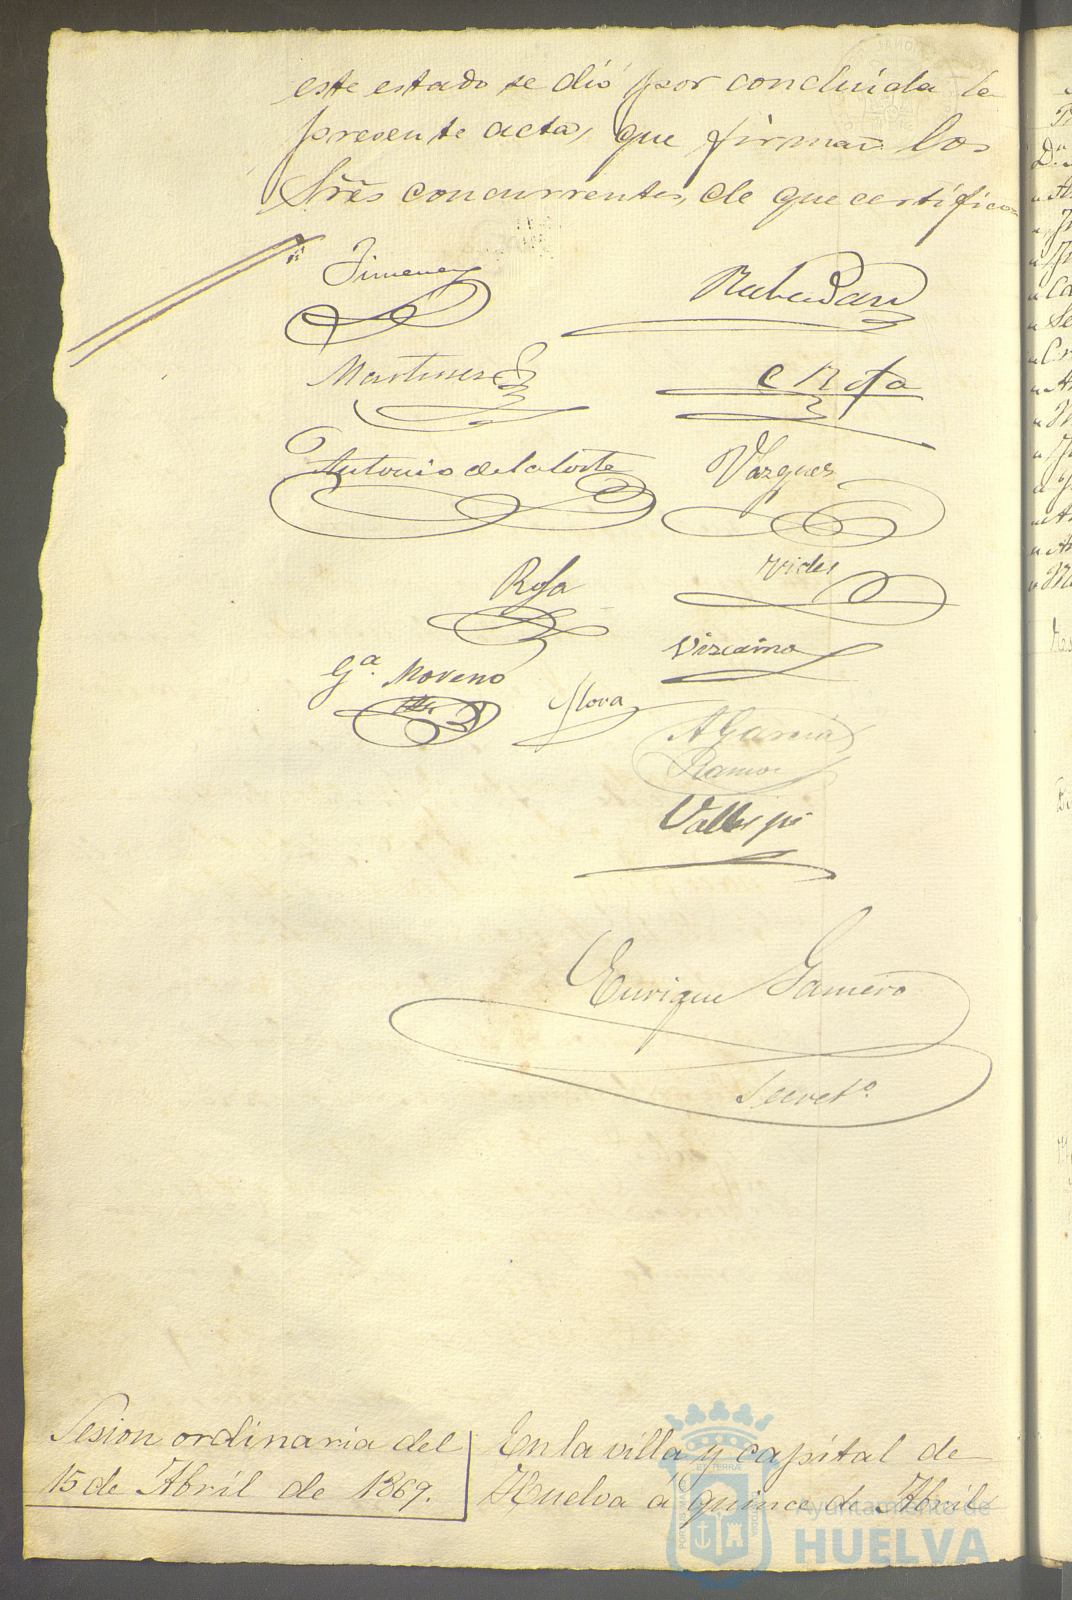 este estado se dió por concluida la
presente acta, que firman los
Sres concurrentes, de que certifico
Jimenez
Rabadan
Martinez
C Rofa
Antonio de la Corte
Vazquez
Rofa
Vides
Vizcaino
Ga. Moreno
Mora
A Garcia
Ramos
Enrique Gamero
Secreto.
Sesion ordinaria del
15 de Abril de 1869.
En la villa y capital de
Huelva a quince de Abril
Ayuntamiento de
HUELVA